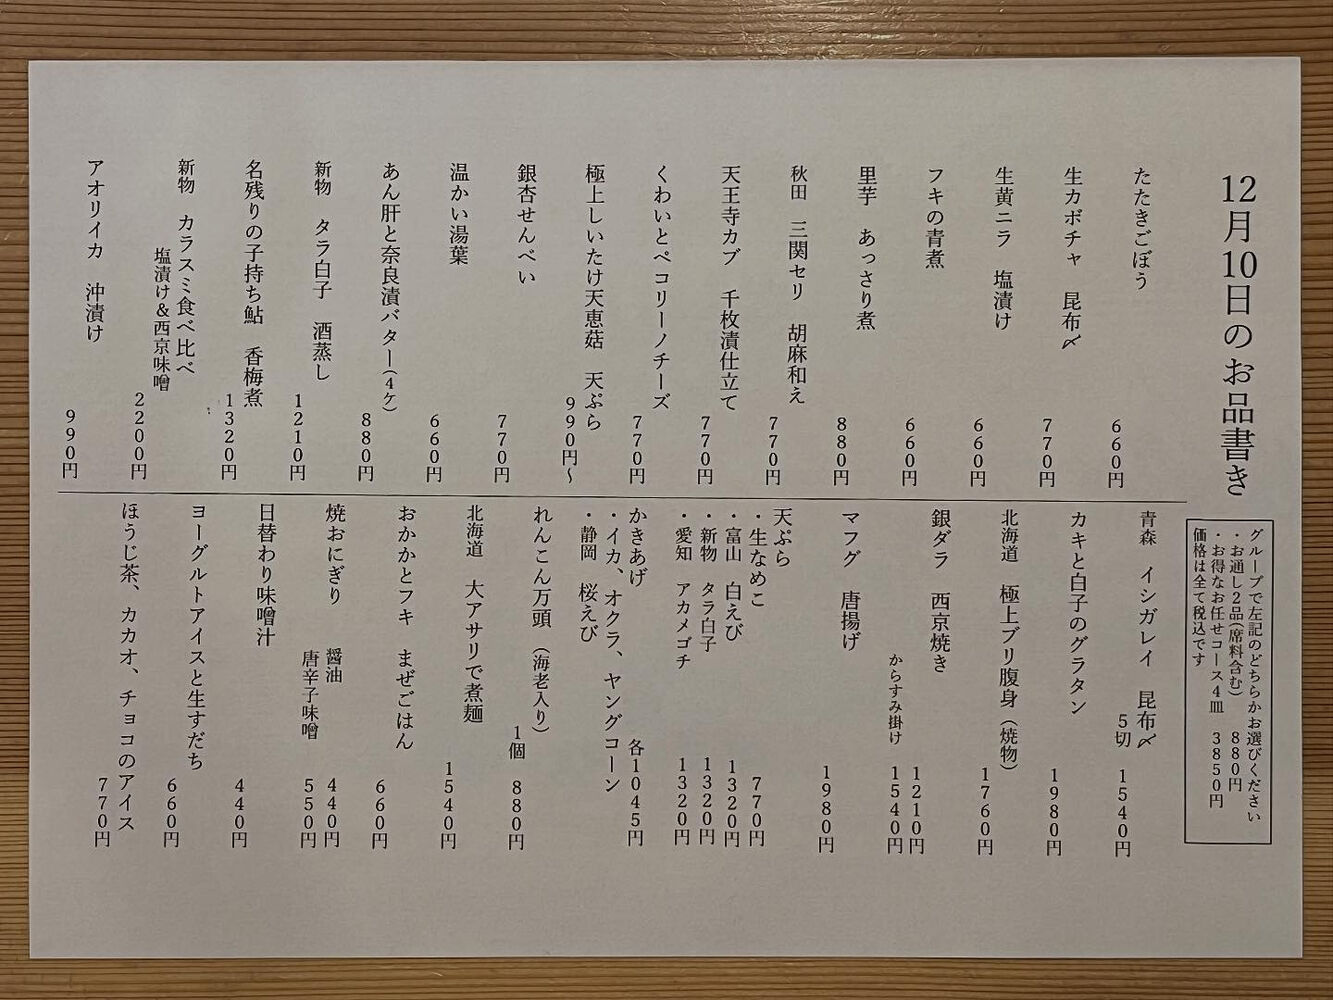 12月10日のお品書き
グループで左記のどちらかお選びください
・お通し2品(席料含む) 880円
・お得なお任せコース4皿 3850円
価格は全て税込です
たたきごぼう 660円
生カボチャ 昆布〆 770円
生黄ニラ 塩漬け 660円
フキの青煮 660円
里芋 あっさり煮 880円
秋田 三関セリ 胡麻和え 770円
天王寺カブ 千枚漬仕立て 770円
くわいとペコリーノチーズ 770円
極上しいたけ天恵菇 天ぷら 990円〜
銀杏せんべい 770円
温かい湯葉 660円
あん肝と奈良漬バター(4ケ) 880円
新物 タラ白子 酒蒸し 1210円
名残りの子持ち鮎 香梅煮 1320円
新物 カラスミ食べ比べ
塩漬け&西京味噌 2200円
アオリイカ 沖漬け 990円
青森 イシガレイ 昆布〆
5切 1540円
カキと白子のグラタン 1980円
北海道 極上ブリ腹身(焼物) 1760円
銀ダラ 西京焼き 1210円
からすみ掛け 1540円
マフグ 唐揚げ 1980円
天ぷら
・生なめこ 770円
・富山 白えび 1320円
・新物 タラ白子 1320円
・愛知 アカメゴチ 1320円
かきあげ 各1045円
・イカ、オクラ、ヤングコーン
・静岡 桜えび
れんこん万頭(海老入り)
1個 880円
北海道 大アサリで煮麺 1540円
おかかとフキ まぜごはん 660円
焼おにぎり 醤油 440円
唐辛子味噌 550円
日替わり味噌汁 440円
ヨーグルトアイスと生すだち 660円
ほうじ茶、カカオ、チョコのアイス 770円